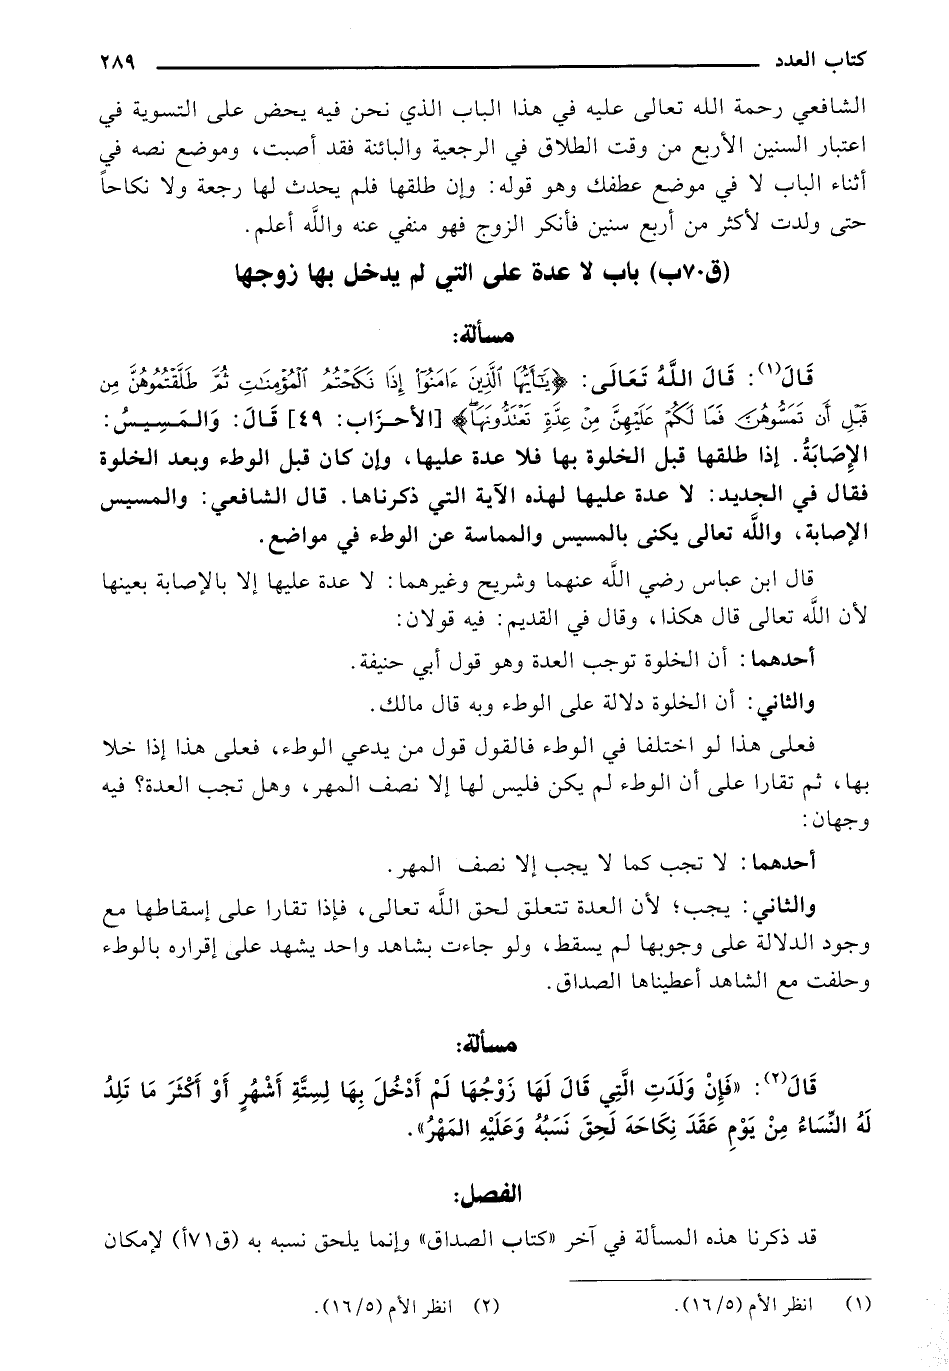 كتاب العدد ٢٨٩
الشافعي رحمة الله تعالى عليه في هذا الباب الذي نحن فيه يحض على التسوية في
اعتبار السنين الأربع من وقت الطلاق في الرجعية والبائنة فقد أصبت، وموضع نصه في
أثناء الباب لا في موضع عطفك وهو قوله: وإن طلقها فلم يحدث لها رجعة ولا نكاحاً
حتى ولدت لأكثر من أربع سنين فأنكر الزوج فهو منفي عنه والله أعلم.
(ق٧٠ب) باب لا عدة على التي لم يدخل بها زوجها
مسألة:
قَالَ(١): قَالَ اللَّهُ تَعَالَى: ﴿يَـٰٓأَيُّهَا ٱلَّذِينَ ءَامَنُوٓاْ إِذَا نَكَحۡتُمُ ٱلۡمُؤۡمِنَـٰتِ ثُمَّ طَلَّقۡتُمُوهُنَّ مِن
قَبۡلِ أَن تَمَسُّوهُنَّ فَمَا لَكُمۡ عَلَيۡهِنَّ مِنۡ عِدَّةٖ تَعۡتَدُّونَهَاۖ﴾ [الأحزَاب: ٤٩] قَالَ: وَالمَسِيسُ:
الإِصَابَةُ. إذا طلقها قبل الخلوة بها فلا عدة عليها، وإن كان قبل الوطء وبعد الخلوة
فقال في الجديد: لا عدة عليها لهذه الآية التي ذكرناها. قال الشافعي: والمسيس
الإصابة، واللَّه تعالى يكنى بالمسيس والمماسة عن الوطء في مواضع.
قال ابن عباس رضي اللَّه عنهما وشريح وغيرهما: لا عدة عليها إلا بالإصابة بعينها
لأن اللَّه تعالى قال هكذا، وقال في القديم: فيه قولان:
أحدهما: أن الخلوة توجب العدة وهو قول أبي حنيفة.
والثاني: أن الخلوة دلالة على الوطء وبه قال مالك.
فعلى هذا لو اختلفا في الوطء فالقول قول من يدعي الوطء، فعلى هذا إذا خلا
بها، ثم تقارا على أن الوطء لم يكن فليس لها إلا نصف المهر، وهل تجب العدة؟ فيه
وجهان:
أحدهما: لا تجب كما لا يجب إلا نصف المهر.
والثاني: يجب؛ لأن العدة تتعلق لحق اللَّه تعالى، فإذا تقارا على إسقاطها مع
وجود الدلالة على وجوبها لم يسقط، ولو جاءت بشاهد واحد يشهد على إقراره بالوطء
وحلفت مع الشاهد أعطيناها الصداق.
مسألة:
قَالَ(٢): «فَإِنْ وَلَدَتِ الَّتِي قَالَ لَهَا زَوْجُهَا لَمْ أَدْخُلْ بِهَا لِسِتَّةِ أَشْهُرٍ أَوْ أَكْثَرَ مَا تَلِدُ
لَهُ النِّسَاءُ مِنْ يَوْمِ عَقَدَ نِكَاحَهُ لَحِقَ نَسَبُهُ وَعَلَيْهِ المَهْرُ».
الفصل:
قد ذكرنا هذه المسألة في آخر «كتاب الصداق» وإنما يلحق نسبه به (ق٧١أ) لإمكان
(١) انظر الأم (١٦/٥). (٢) انظر الأم (١٦/٥).